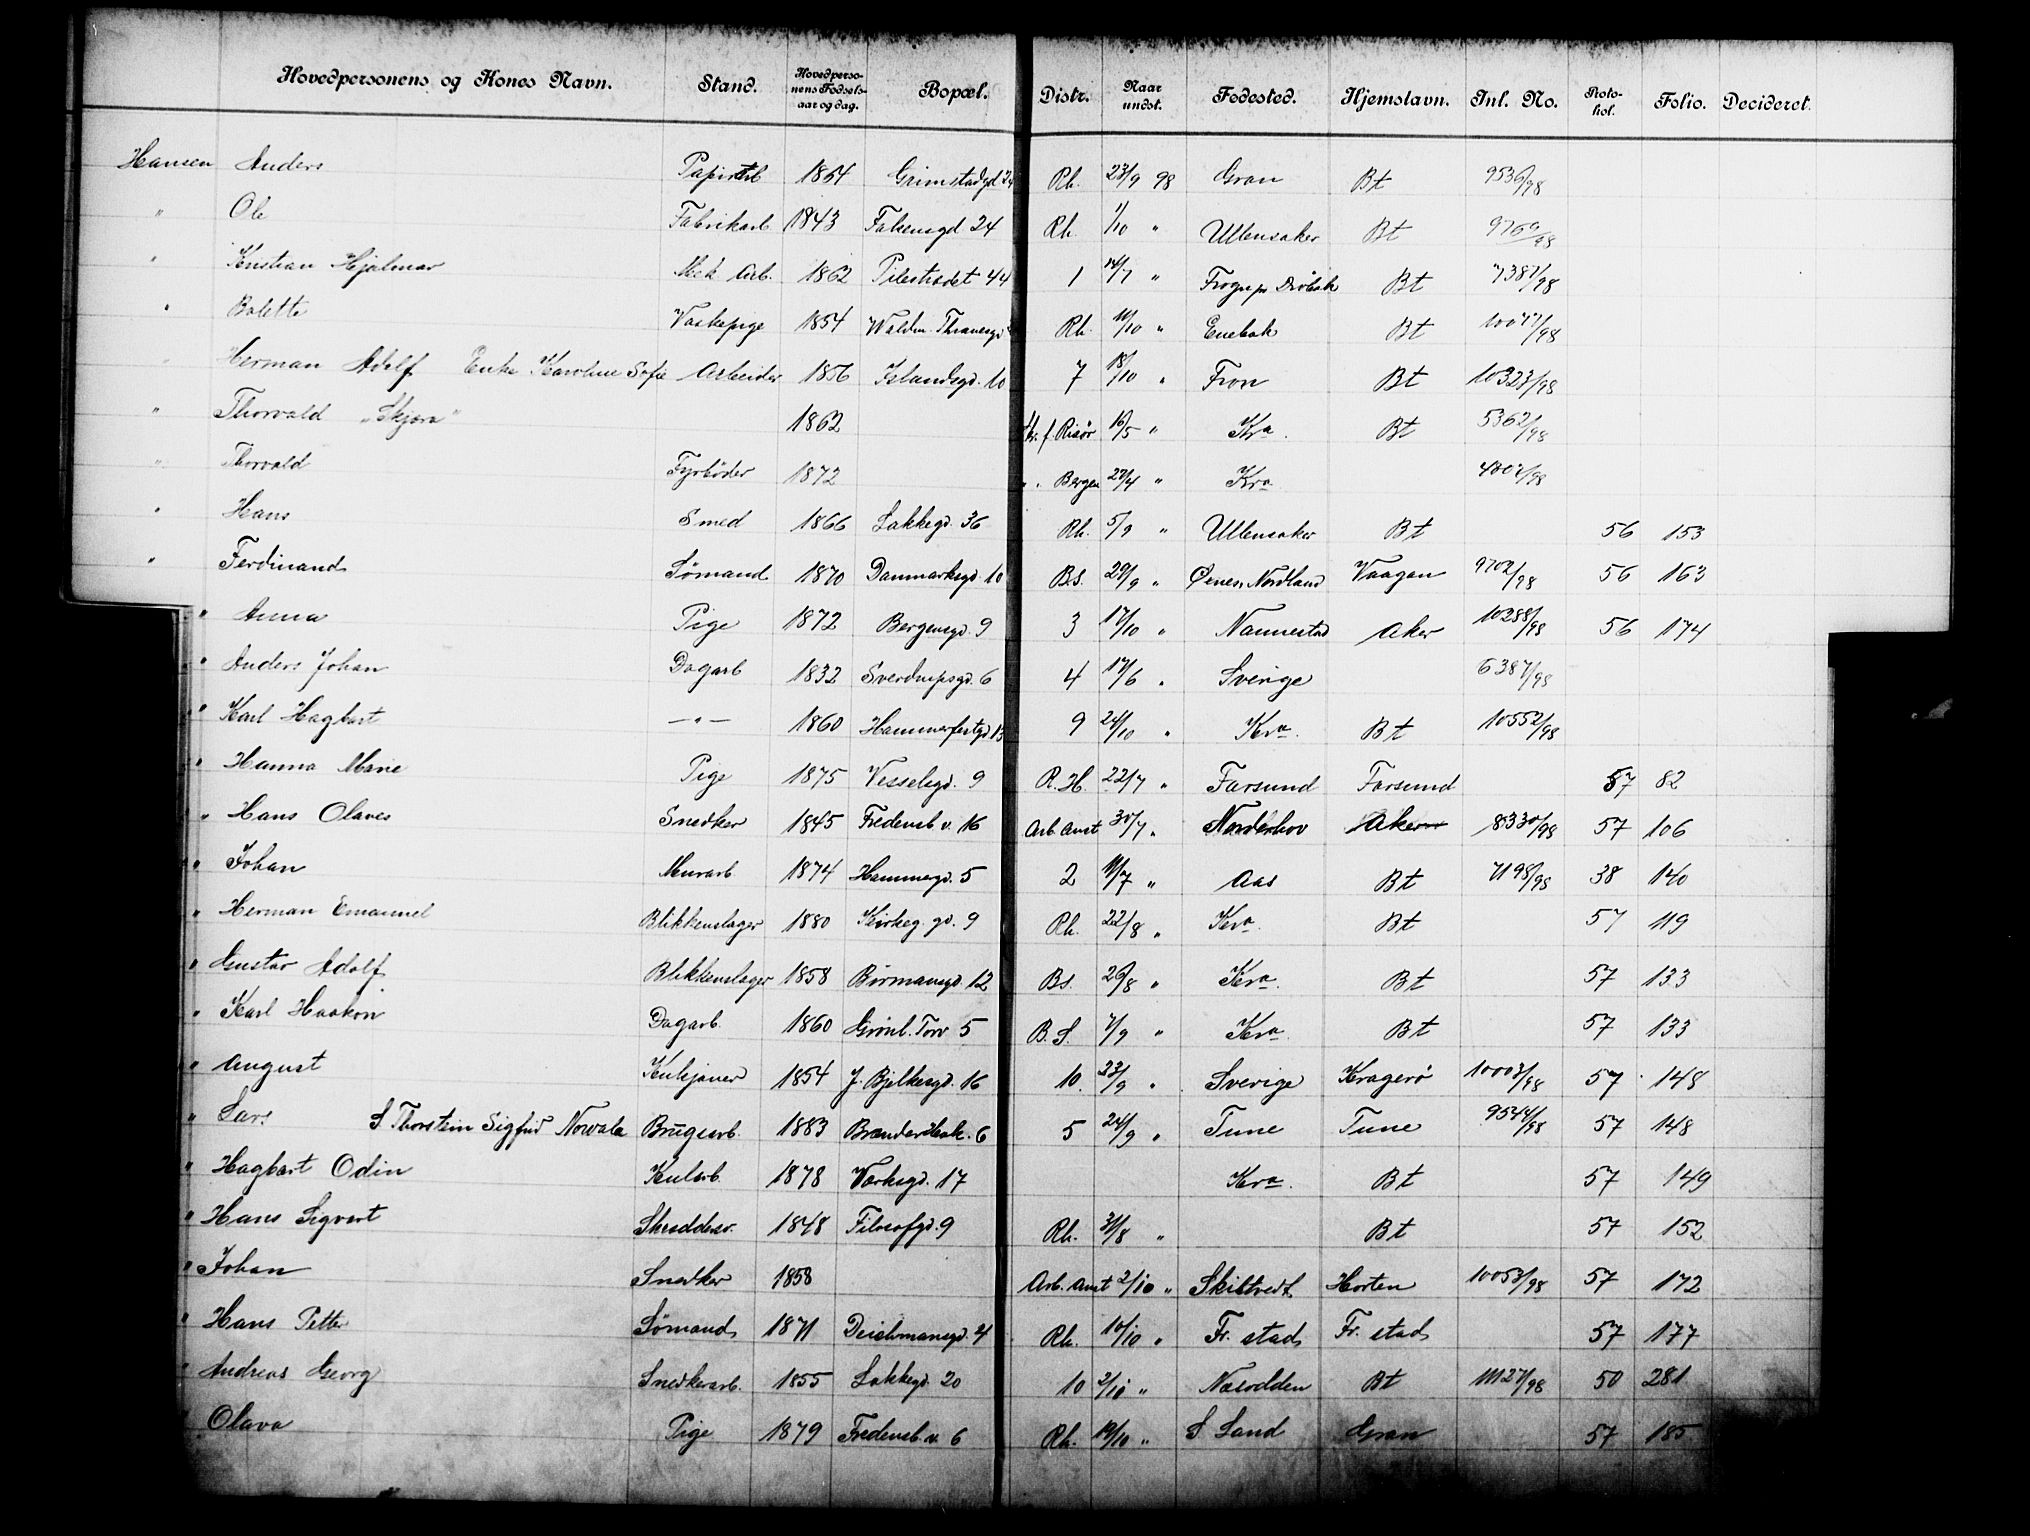 Hovedpersonens og Kones Navn. Stand. Hovedpersonens Fødselsaar og dag. Bopæl. Distr. Naar undst. Fødested. Hjemslavn. Inl. No. Protokol. Folio. Decideret.
Hansen Anders Papirarb 1864 Grimstadgd 24 Rh. 23/9 98 Gran Bt 9536/98
" Ole Fabrikarb 1843 Falsensgd 24 Rh. 1/10 " Ullensaker Bt 9769/98
" Kristian Hjalmar Mek. Arb. 1862 Pilestrædet 44 1 14/7 " Frogn pr Drøbak Bt 7387/98
" Bolette Vaskepige 1854 Waldm. Thranesgd Rh. 11/10 " Enebak Bt 10077/98
" Herman Adolf Enke Karoline Sofie Arbeider 1856 Islandsgd. 10 7 18/10 " Fron Bt 10323/98
" Thorvald "Skjæra" 1862 Kr. f. Risør 16/5 " Kra. Bt 5362/98
" Thorvald Fyrbøder 1872 " " Bergen 27/4 " Kra 4707/98
" Hans Smed 1866 Lakkegd. 36 Rh. 5/9 " Ullensaker Bt 56 153
" Ferdinand Sømand 1870 Danmarksgd. 10 B.S. 29/9 " Øenes, Nordland Vaagan 9702/98 56 163
" Anna Pige 1872 Bergensgd. 9 3 17/10 " Nannestad Aker 10288/98 56 174
" Anders Johan Dagarb 1832 Sverdrupsgd. 6 4 17/6 " Sverige 6387/98
" Karl Hagbart — " — 1860 Hammerfestgd 13 9 24/10 " Kra. Bt 10552/98
" Hanna Marie Pige 1875 Vesselsgd. 9 R.H. 22/7 " Farsund Farsund 57 82
" Hans Olaves Snedker 1845 Fredensb.v. 16 Arb. Anst 30/7 " Norderhov Aker 8330/98 57 106
" Johan Murarb 1874 Hammergd. 5 2 11/7 " Aas Bt 7198/98 38 140
" Herman Emanuel Blikkenslager 1880 Kirkeg. gd. 9 Rh. 22/8 " Kra. Bt 57 119
" Gustav Adolf Blikkenslager 1858 Birmansgd. 12 Bs. 26/8 " Kra. Bt 57 133
" Karl Haakon Dagarb. 1860 Grønl. Torv 5 B.S. 7/9 " Kra. Bt 57 133
" August Kulkjører 1854 J. Bjelkesgd. 16 10. 23/9 " Sverige Kragerø 10003/98 57 148
" Lars S Thorstein Sigfrid Norvald Brugsarb. 1883 Brænderibak. 6 5 24/9 " Tune Tune 9544/98 57 148
" Hagbart Odin Kularb. 1878 Værksgd. 17 Kra. Bt 57 149
" Hans Sigvart Skreddersv. 1848 Filosofgd. 9 Rh. 31/8 " Bt 57 152
" Johan Snedker 1858 Arb. Anst 2/10 " Skiptvedt Horten 10053/98 57 172
" Hans Petter Sømand 1871 Deichmansgd. 4 Rh. 10/10 " Fr. stad Fr. stad 57 177
" Andreas Georg Snedkerarb. 1855 Lakkegd. 20 10 2/10 " Næsodden Bt 11127/98 50 281
" Olava Pige 1879 Fredensb.v. 6 Rh. 19/10 " S Land Gran 57 185